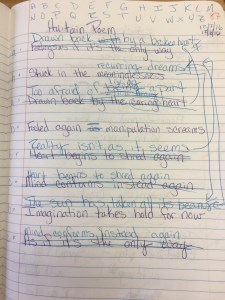 A B C D E F G H I J K L M
N O P Q R S T U V W X Y Z
Huitain Poem
Drawn back by a broken heart
it's the only way
recurring dreams
Stuck in the meaninglessness
Too afraid of a part
Drawn back by the racing heart
Failed again manipulation screams
reality isn't as it seems
Heart begins to shred again
Heart begins to shred again
Mind conforms instead again
The sun has taken all its
Imagination takes hold for now
Mind conforms instead again
As if it's the only way